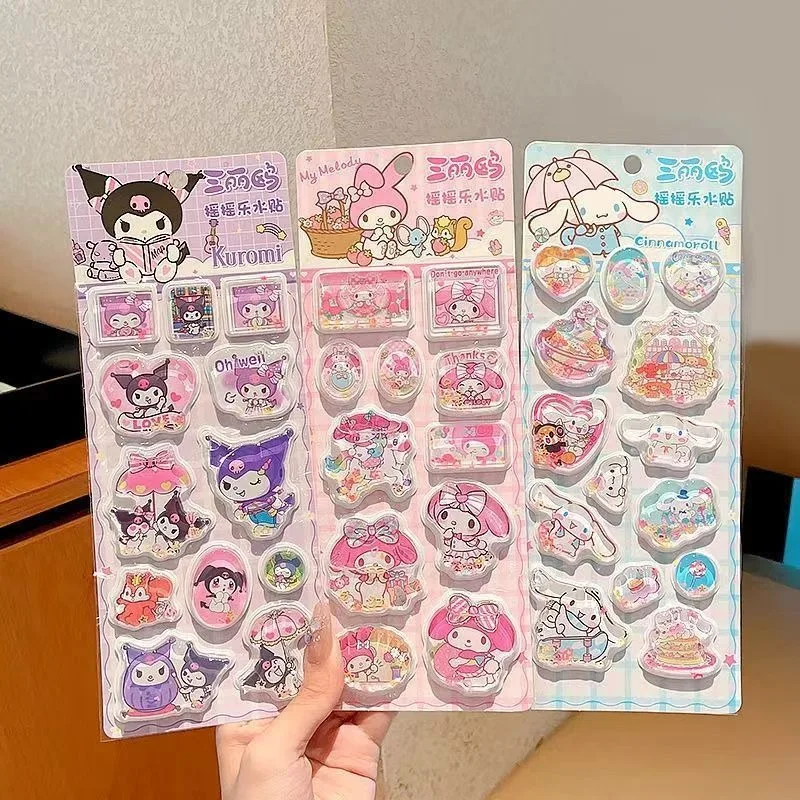 三丽鸥
摇摇乐水贴
Kuromi
Oh well
LOVE
My Melody
三丽鸥
摇摇乐水贴
Don't go anywhere
Thanks
MELODY
三丽鸥
摇摇乐水贴
Cinnamoroll